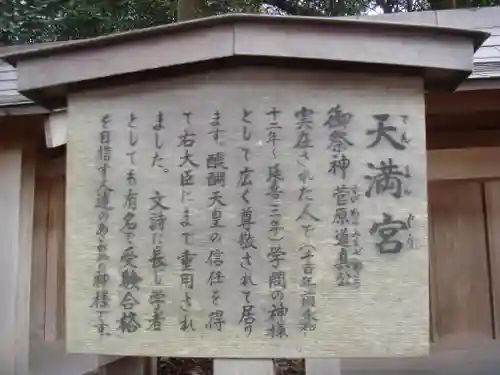 天満宮
てんまんぐう
御祭神 菅原道真公
実在された人で(千百年前承和
十二年～延喜三年)学問の神様
として広く尊敬されて居り
ます。醍醐天皇の信任を得
て右大臣にまで重用され
ました。文詩に長じ学者
としても有名で受験合格
を目指す人達のあこがれの神様です。